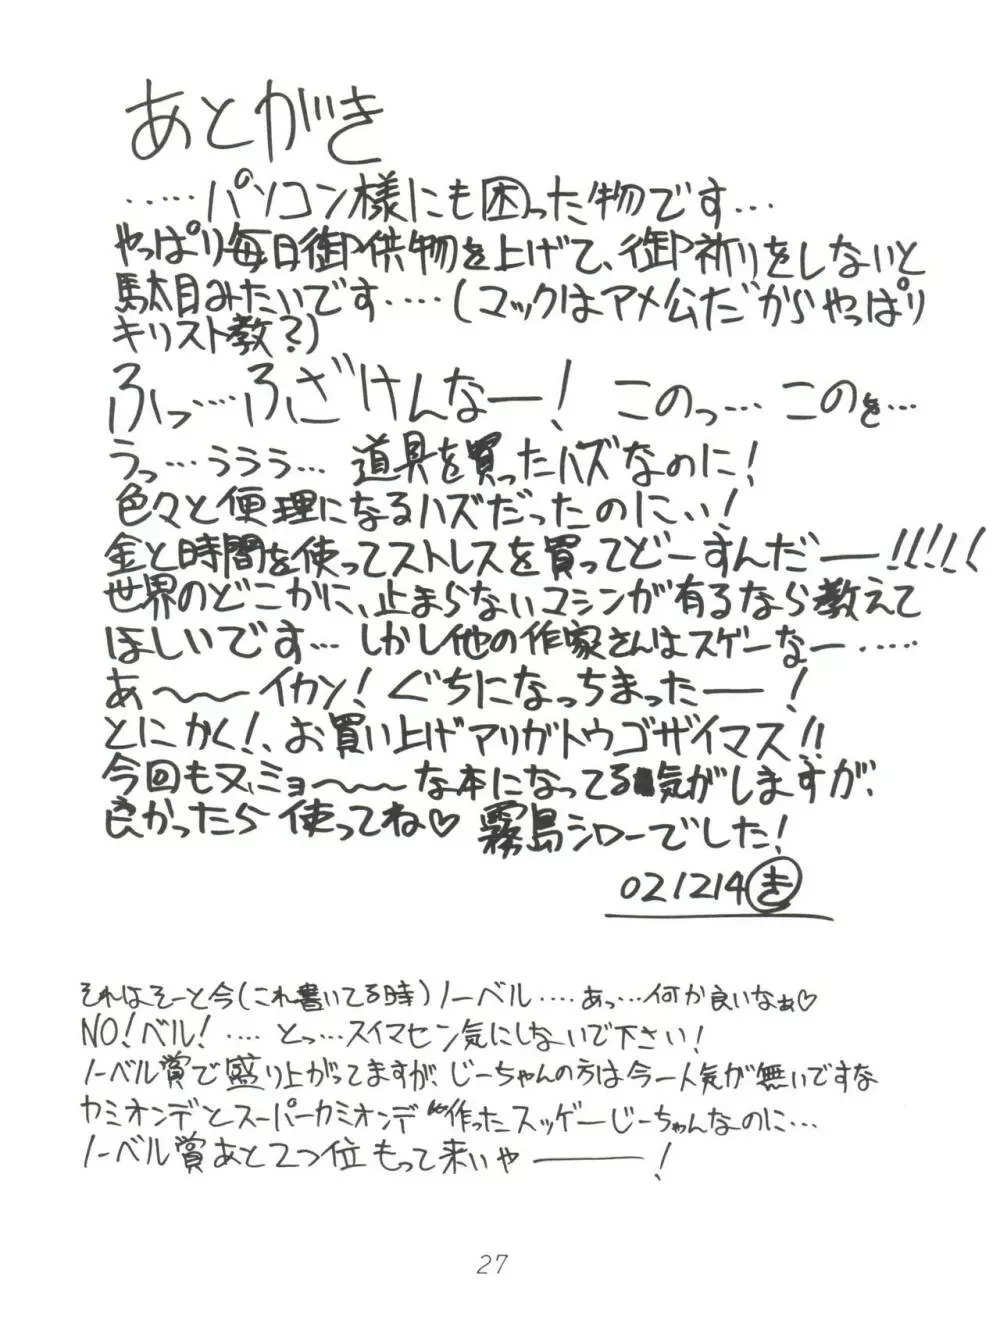 あとがき
‥‥‥パソコン様にも困った物です‥‥
やっぱり毎日御供物を上げて、御祈りをしないと
駄目みたいです‥‥(マックはアメ公だからやっぱり
キリスト教?)
ふっ‥‥ふざけんなー! このっ‥‥ このを‥‥
うっ‥‥ううう‥‥ 道具を買ったハズなのに!
色々と便理になるハズだったのにぃ!
金と時間を使ってストレスを買ってどーすんだー!!!!!
世界のどこかに、止まらないマシンが有るなら教えて
ほしいです‥‥ しかし他の作家さんはスゲーなー‥‥‥
あ〜〜イカン! ぐちになっちまったー!
とにかく!、お買い上げアリガトウゴザイマス!!
今回も又、ミョ〜〜な本になってる気がしますが、
良かったら使ってね♡ 霧島シローでした!
021214 き
それはそーと今(これ書いてる時)ノーベル‥‥あっ‥‥何か良いなぁ♡
NO!ベル!‥‥ とっ‥‥スイマセン気にしないで下さい!
ノーベル賞で盛り上がってますが、じーちゃんの方は今一人気が無いですな
カミオンデとスーパーカミオンデ作ったスッゲーじーちゃんなのに‥‥
ノーベル賞あと2つ位もって来いやー!
27